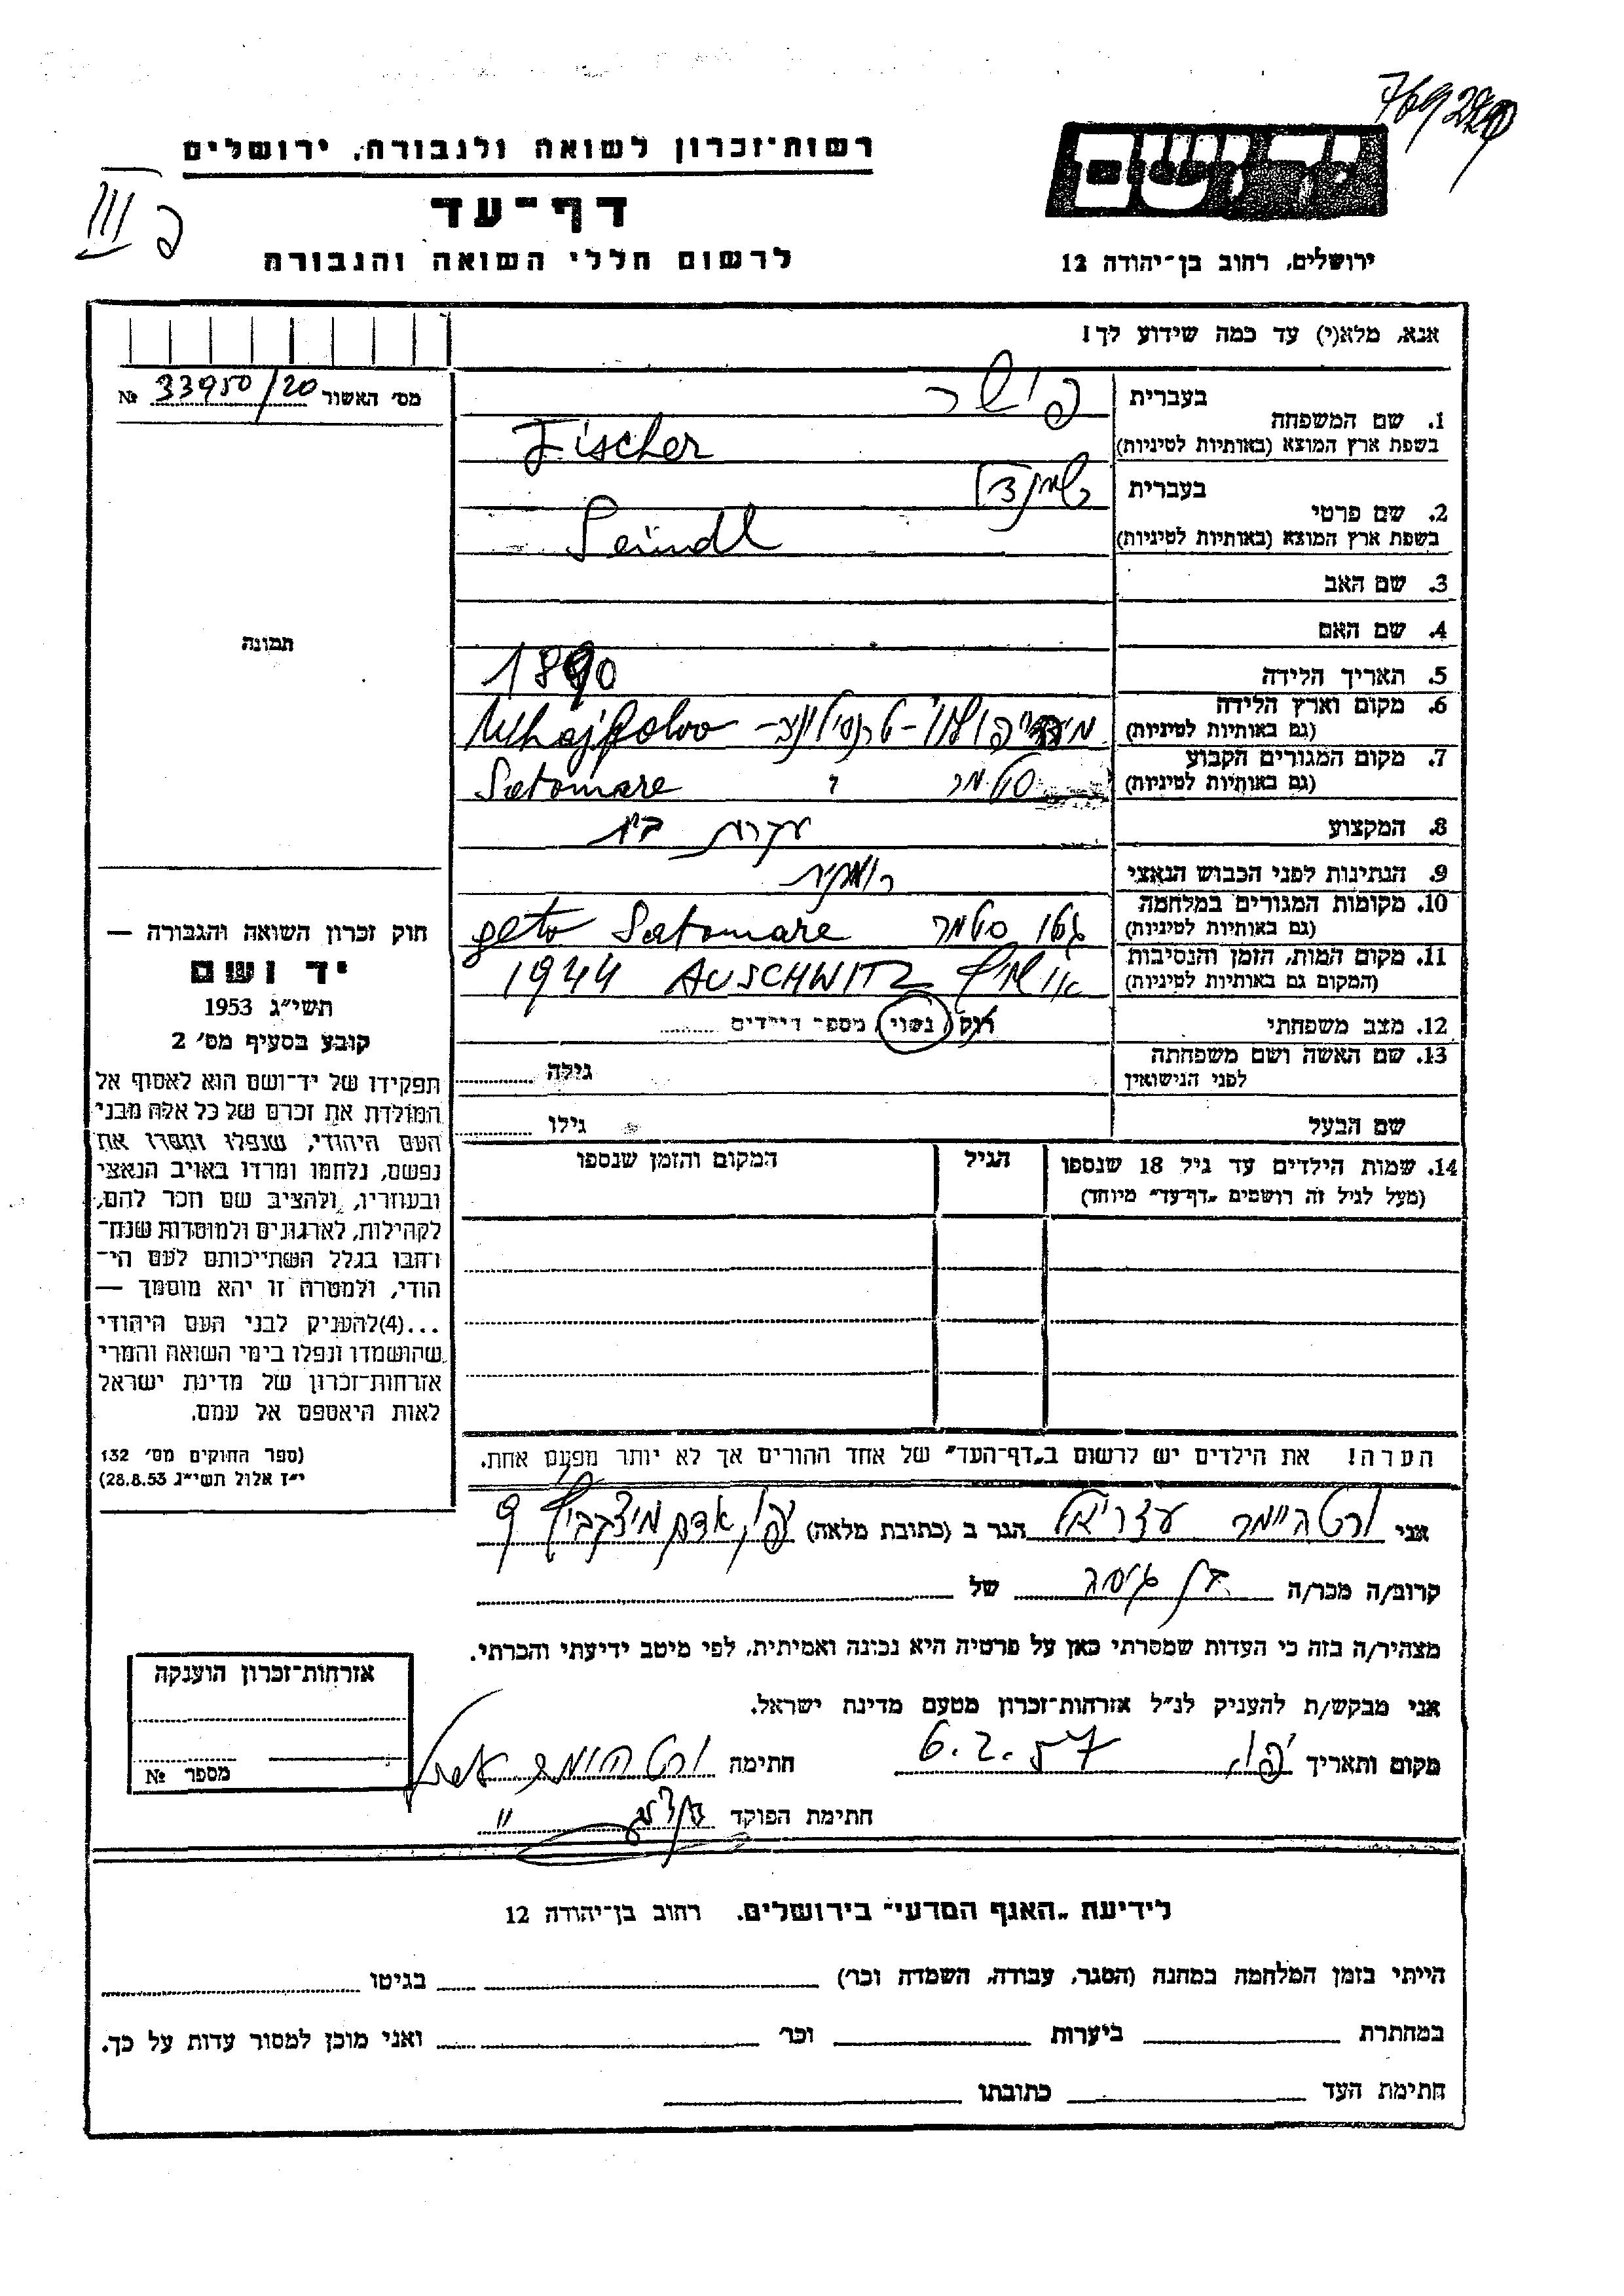 רשות־זכרון לשואה ולגבורה, ירושלים
דף־עד
לרשום חללי השואה והגבורה
יד ושם
ירושלים, רחוב בן־יהודה 12
III
אנא, מלא(י) עד כמה שידוע לך!
מס׳ האשור 33950/20 №
1. שם המשפחה
בעברית פישר
בשפת ארץ המוצא (באותיות לטיניות) Fischer
2. שם פרטי
בעברית
בשפת ארץ המוצא (באותיות לטיניות)
3. שם האב
4. שם האם
תמונה
5. תאריך הלידה 1890
6. מקום וארץ הלידה
(גם באותיות לטיניות)
7. מקום המגורים הקבוע סטמר
(גם באותיות לטיניות) Satomare
8. המקצוע עקרת בית
9. הנתינות לפני הכבוש הנאצי
10. מקומות המגורים במלחמה גטו סטמר
(גם באותיות לטיניות) geto Satomare
11. מקום המות, הזמן והנסיבות
(המקום גם באותיות לטיניות) AUSCHWITZ 1944
12. מצב משפחתי רוק נשוי, מספר הילדים
13. שם האשה ושם משפחתה
לפני הנישואין גילה
שם הבעל גילו
14. שמות הילדים עד גיל 18 שנספו
(מעל לגיל זה רושמים „דף־עד״ מיוחד)
הגיל
המקום והזמן שנספו
חוק זכרון השואה והגבורה —
יד ושם
תשי״ג 1953
קובע בסעיף מס׳ 2
תפקידו של יד־ושם הוא לאסוף אל
המולדת את זכרם של כל אלה מבני
העם היהודי, שנפלו ומסרו את
נפשם, נלחמו ומרדו באויב הנאצי
ובעוזריו, ולהציב שם וזכר להם,
לקהילות, לארגונים ולמוסדות שנח־
רחבו בגלל השתייכותם לעם הי־
הודי, ולמטרה זו יהא מוסמך —
...(4)להעניק לבני העם היהודי
שהושמדו ונפלו בימי השואה והמרי
אזרחות־זכרון של מדינת ישראל
לאות היאספם אל עמם.
(ספר החוקים מס׳ 132
י״ז אלול תשי״ג 28.8.53)
הערה! את הילדים יש לרשום ב„דף־העד״ של אחד ההורים אך לא יותר מפעם אחת.
אני עזריאל הגר ב (כתובת מלאה) יפו, אדם מיצקביץ 9
קרוב/ה מכר/ה של
מצהיר/ה בזה כי העדות שמסרתי כאן על פרטיה היא נכונה ואמיתית, לפי מיטב ידיעתי והכרתי.
אני מבקש/ת להעניק לנ״ל אזרחות־זכרון מטעם מדינת ישראל.
מקום ותאריך יפו, 6.2.57 חתימה
חתימת הפוקד
אזרחות־זכרון הוענקה
מספר №
לידיעת „האגף המדעי״ בירושלים. רחוב בן־יהודה 12
הייתי בזמן המלחמה במחנה (הסגר, עבודה, השמדה וכר׳) בגיטו
במחתרת ביערות וכר׳ ואני מוכן למסור עדות על כך.
חתימת העד כתובתו